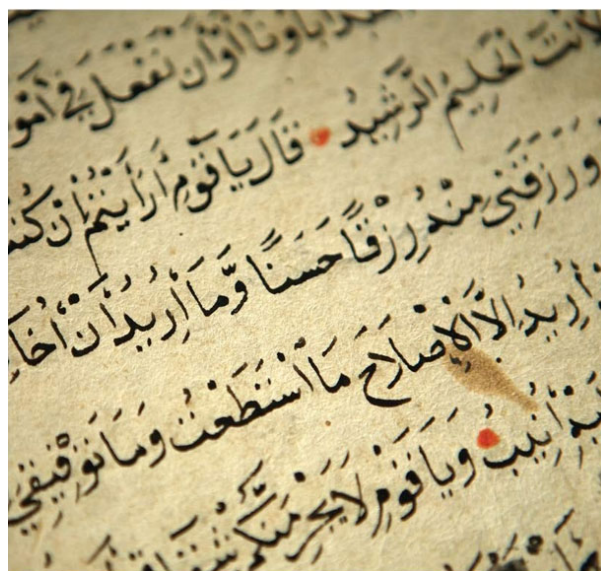 اَبَاؤُنَا أَوْ أَنْ نَفْعَلَ فِي أَمْو
لَأَنْتَ الْحَلِيمُ الرَّشِيدُ قَالَ يَا قَوْمِ أَرَأَيْتُمْ إِنْ كُنْتُ
وَرَزَقَنِي مِنْهُ رِزْقًا حَسَنًا وَّمَا أُرِيدُ أَنْ أُخَا
أُرِيدُ اِلَّا الْإِصْلَاحَ مَا اسْتَطَعْتُ وَمَا تَوْفِيقِي
أُنِيبُ وَيَا قَوْمِ لَا يَجْرِمَنَّكُمْ شِقَاقِي